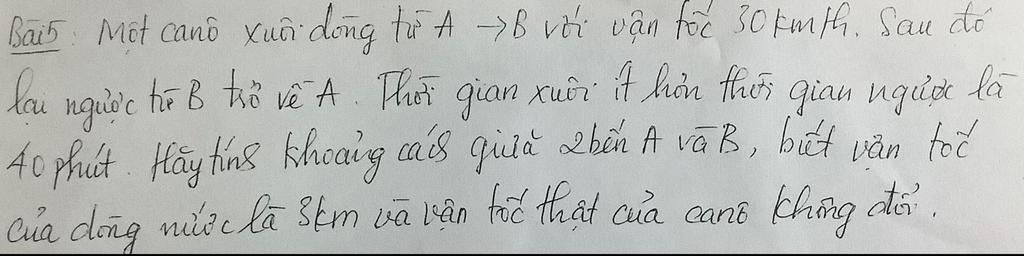 Bài 5: Một canô xuôi dòng từ A → B với vận tốc 30 km/h. Sau đó
lại ngược từ B trở về A. Thời gian xuôi ít hơn thời gian ngược là
40 phút. Hãy tính khoảng cách giữa 2 bến A và B, biết vận tốc
của dòng nước là 3km và vận tốc thật của canô không đổi.